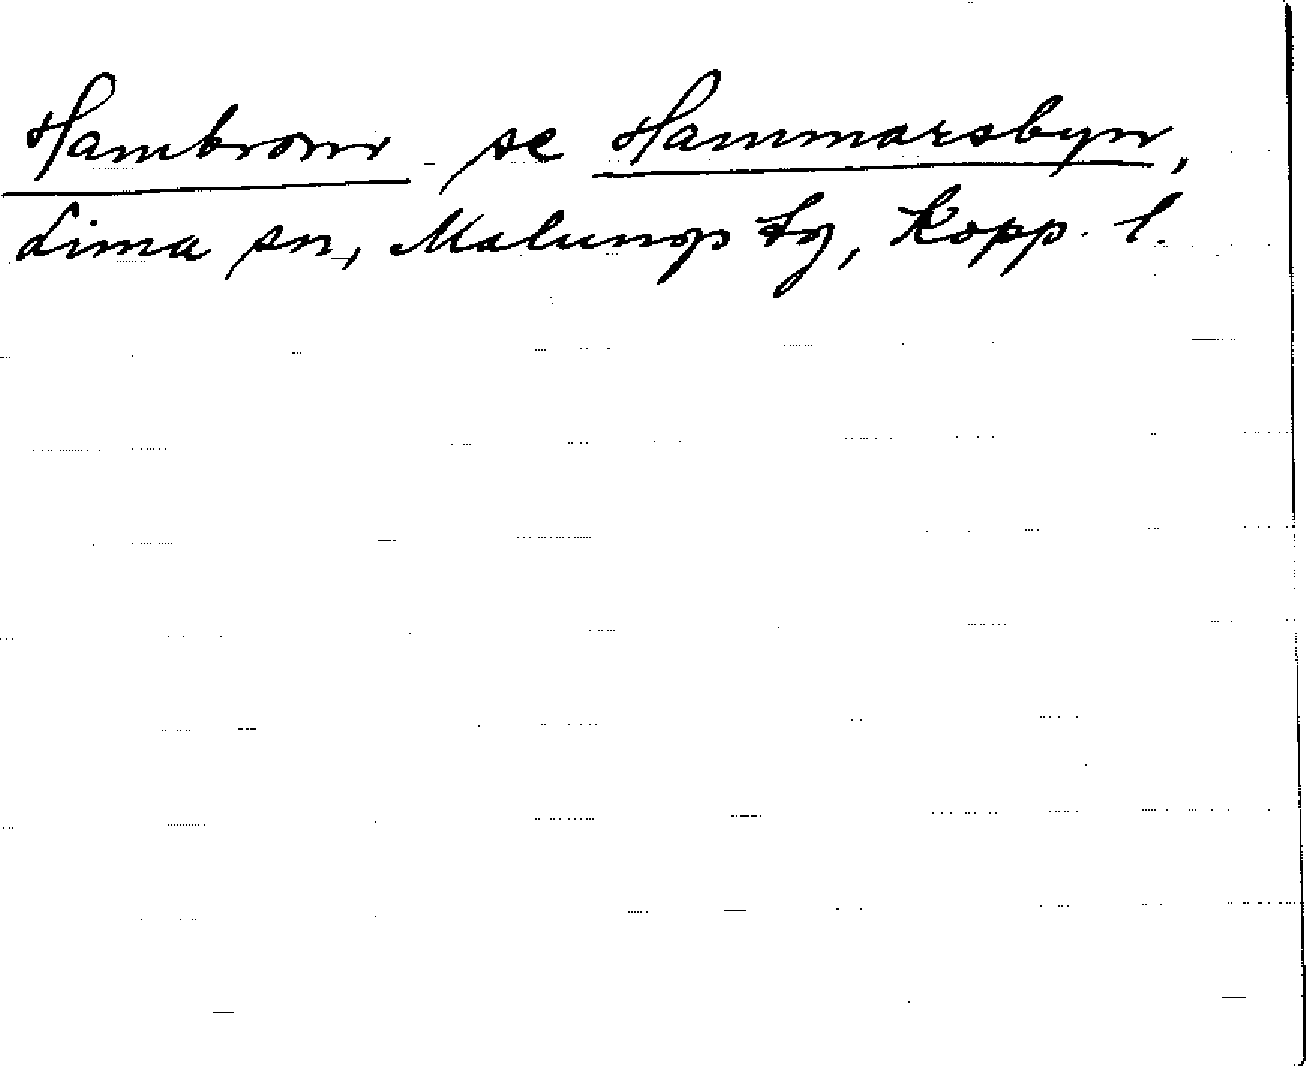 Hambronn se Hammarsbyn,
Lima sn, Malungs tg, Kopp. l.